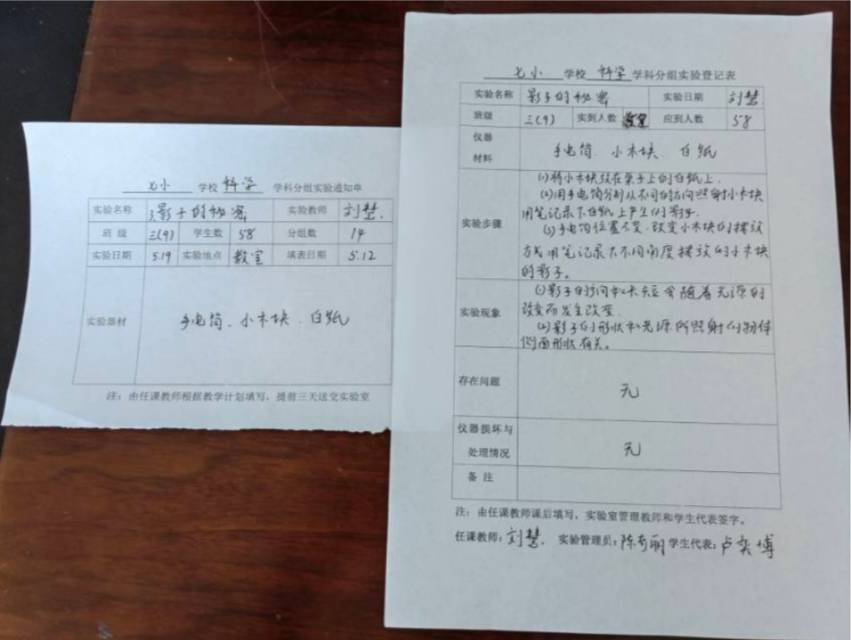 七小 学校 科学 学科分组实验通知单
实验名称 影子的秘密 实验教师 刘慧
班 级 三(9) 学生数 58 分组数 14
实验日期 5.19 实验地点 教室 填表日期 5.12
实验器材 手电筒、小木块、白纸
注：由任课教师根据教学计划填写，提前三天送交实验室
七小 学校 科学 学科分组实验登记表
实验名称 影子的秘密 实验日期 刘慧
班级 三(9) 实到人数 教室 应到人数 58
仪器
材料
手电筒、小木块、白纸
实验步骤
(1)将小木块放在桌子上的白纸上.
(2)用手电筒分别从不同的方向照射小木块
用笔记录下白纸上产生的影子.
(3)手电筒位置不变.改变小木块的摆放
方式.用笔记录下不同角度摆放的小木块
的影子。
实验现象
(1)影子的方向和长短会随着光源的
改变而发生改变.
(2)影子的形状和光源所照射的物体
侧面形状有关。
存在问题 无
仪器损坏与
处理情况
无
备 注
注：由任课教师课后填写，实验室管理教师和学生代表签字。
任课教师：刘慧. 实验管理员：陈 丽 学生代表：卢奕博